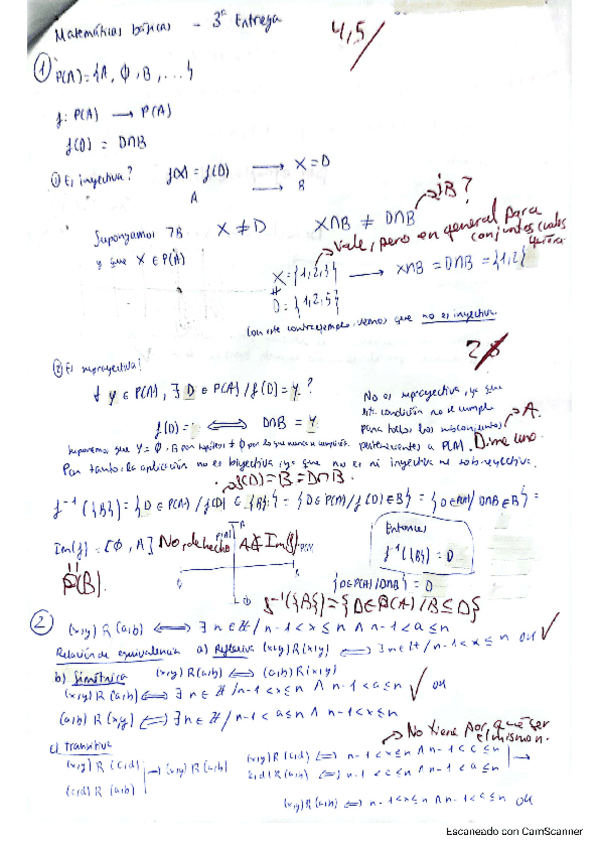 Matemáticas básicas - 3ª Entrega
4,5/
① P(A) = {A, ∅, B, ...}
f: P(A) → P(A)
f(D) = D∩B
① Es inyectiva? f(x) = f(D) → X = D
A → B
Supongamos 7B X ≠ D X∩B ≠ D∩B ¿B?
y que X ∈ P(A)
Vale, pero en general para conjuntos cuales
X = {1,2,3} → X∩B = D∩B = {1,2}
≠
D = {1,2,5}
Con este contraejemplo, vemos que no es inyectiva.
② Es suprayectiva?
∀ y ∈ P(A), ∃ D ∈ P(A) / f(D) = y ?
f(D) = ⟺ D∩B = Y
No es suprayectiva, ya que
condición no se cumple
para todos los
pertenecientes a P(A). Dime uno.
A.
Por tanto, la aplicación no es biyectiva, ya que no es ni inyectiva ni sobreyectiva.
f(D) = B = D∩B.
f⁻¹({B}) = {D ∈ P(A) / f(D) ∈ {B}} = {D ∈ P(A) / f(D) ∈ B} = {D ∈ P(A) / D∩B ∈ B} =
Im(f) = [∅, A] No, de hecho A∉Im(f)
P(B).
Entonces
f⁻¹({B}) = D
{D ∈ P(A) / D∩B} = D
f⁻¹({B}) = {D ∈ P(A) / B ⊆ D}
② (x,y) R (a,b) ⟺ ∃ n ∈ ℤ / n-1 < x ≤ n ∧ n-1 < a ≤ n
Relación de equivalencia a) Reflexiva (x,y) R (x,y) ⟺ ∃ n ∈ ℤ / n-1 < x ≤ n ok ✓
b) Simétrica (x,y) R (a,b) ⟺ (a,b) R (x,y)
(x,y) R (a,b) ⟺ ∃ n ∈ ℤ / n-1 < x ≤ n ∧ n-1 < a ≤ n ✓ ok
(a,b) R (x,y) ⟺ ∃ n ∈ ℤ / n-1 < a ≤ n ∧ n-1 < x ≤ n
No tiene por qué ser el mismo n.
c) Transitiva
(x,y) R (c,d) → (x,y) R (a,b) (x,y) R (c,d) ⟺ n-1 < x ≤ n ∧ n-1 < c ≤ n →
(c,d) R (a,b) (c,d) R (a,b) ⟺ n-1 < c ≤ n ∧ n-1 < a ≤ n
(x,y) R (a,b) ⟺ n-1 < x ≤ n ∧ n-1 < a ≤ n ok
Escaneado con CamScanner